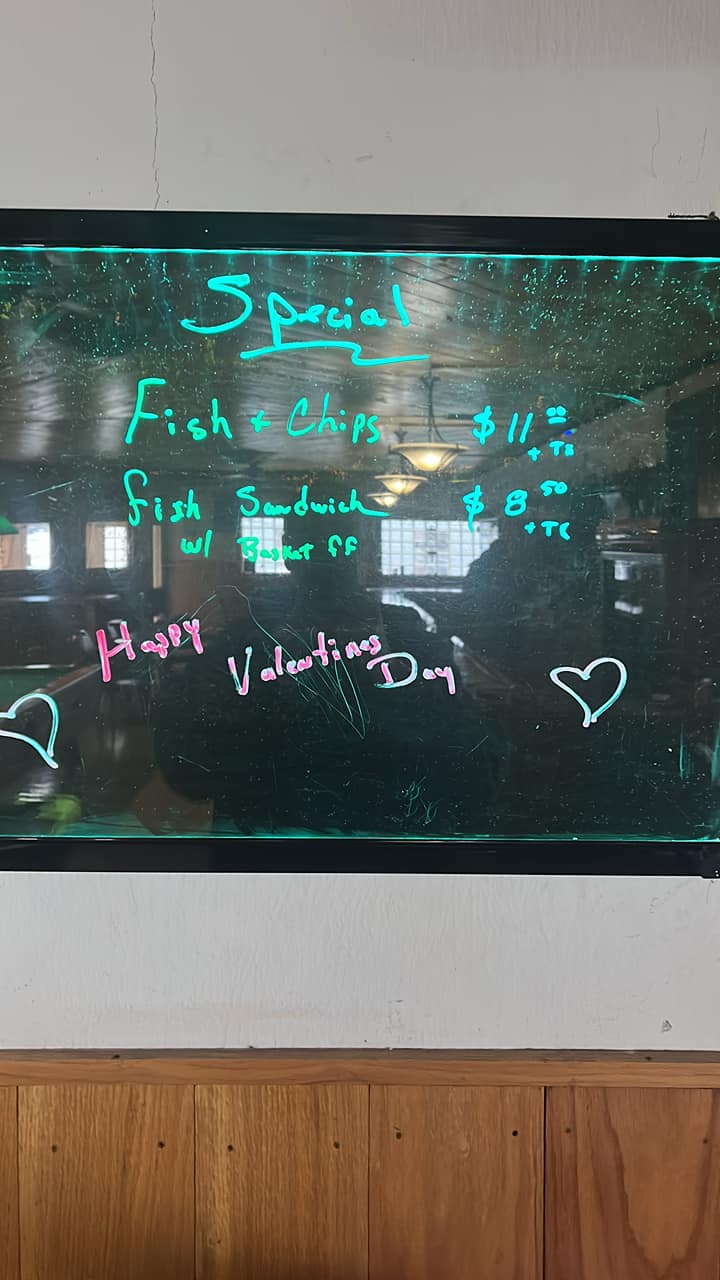 Special
Fish + Chips $11.00
+ TX
Fish Sandwich $8.50
+ TX
w/ Basket FF
Happy
Valentines
Day